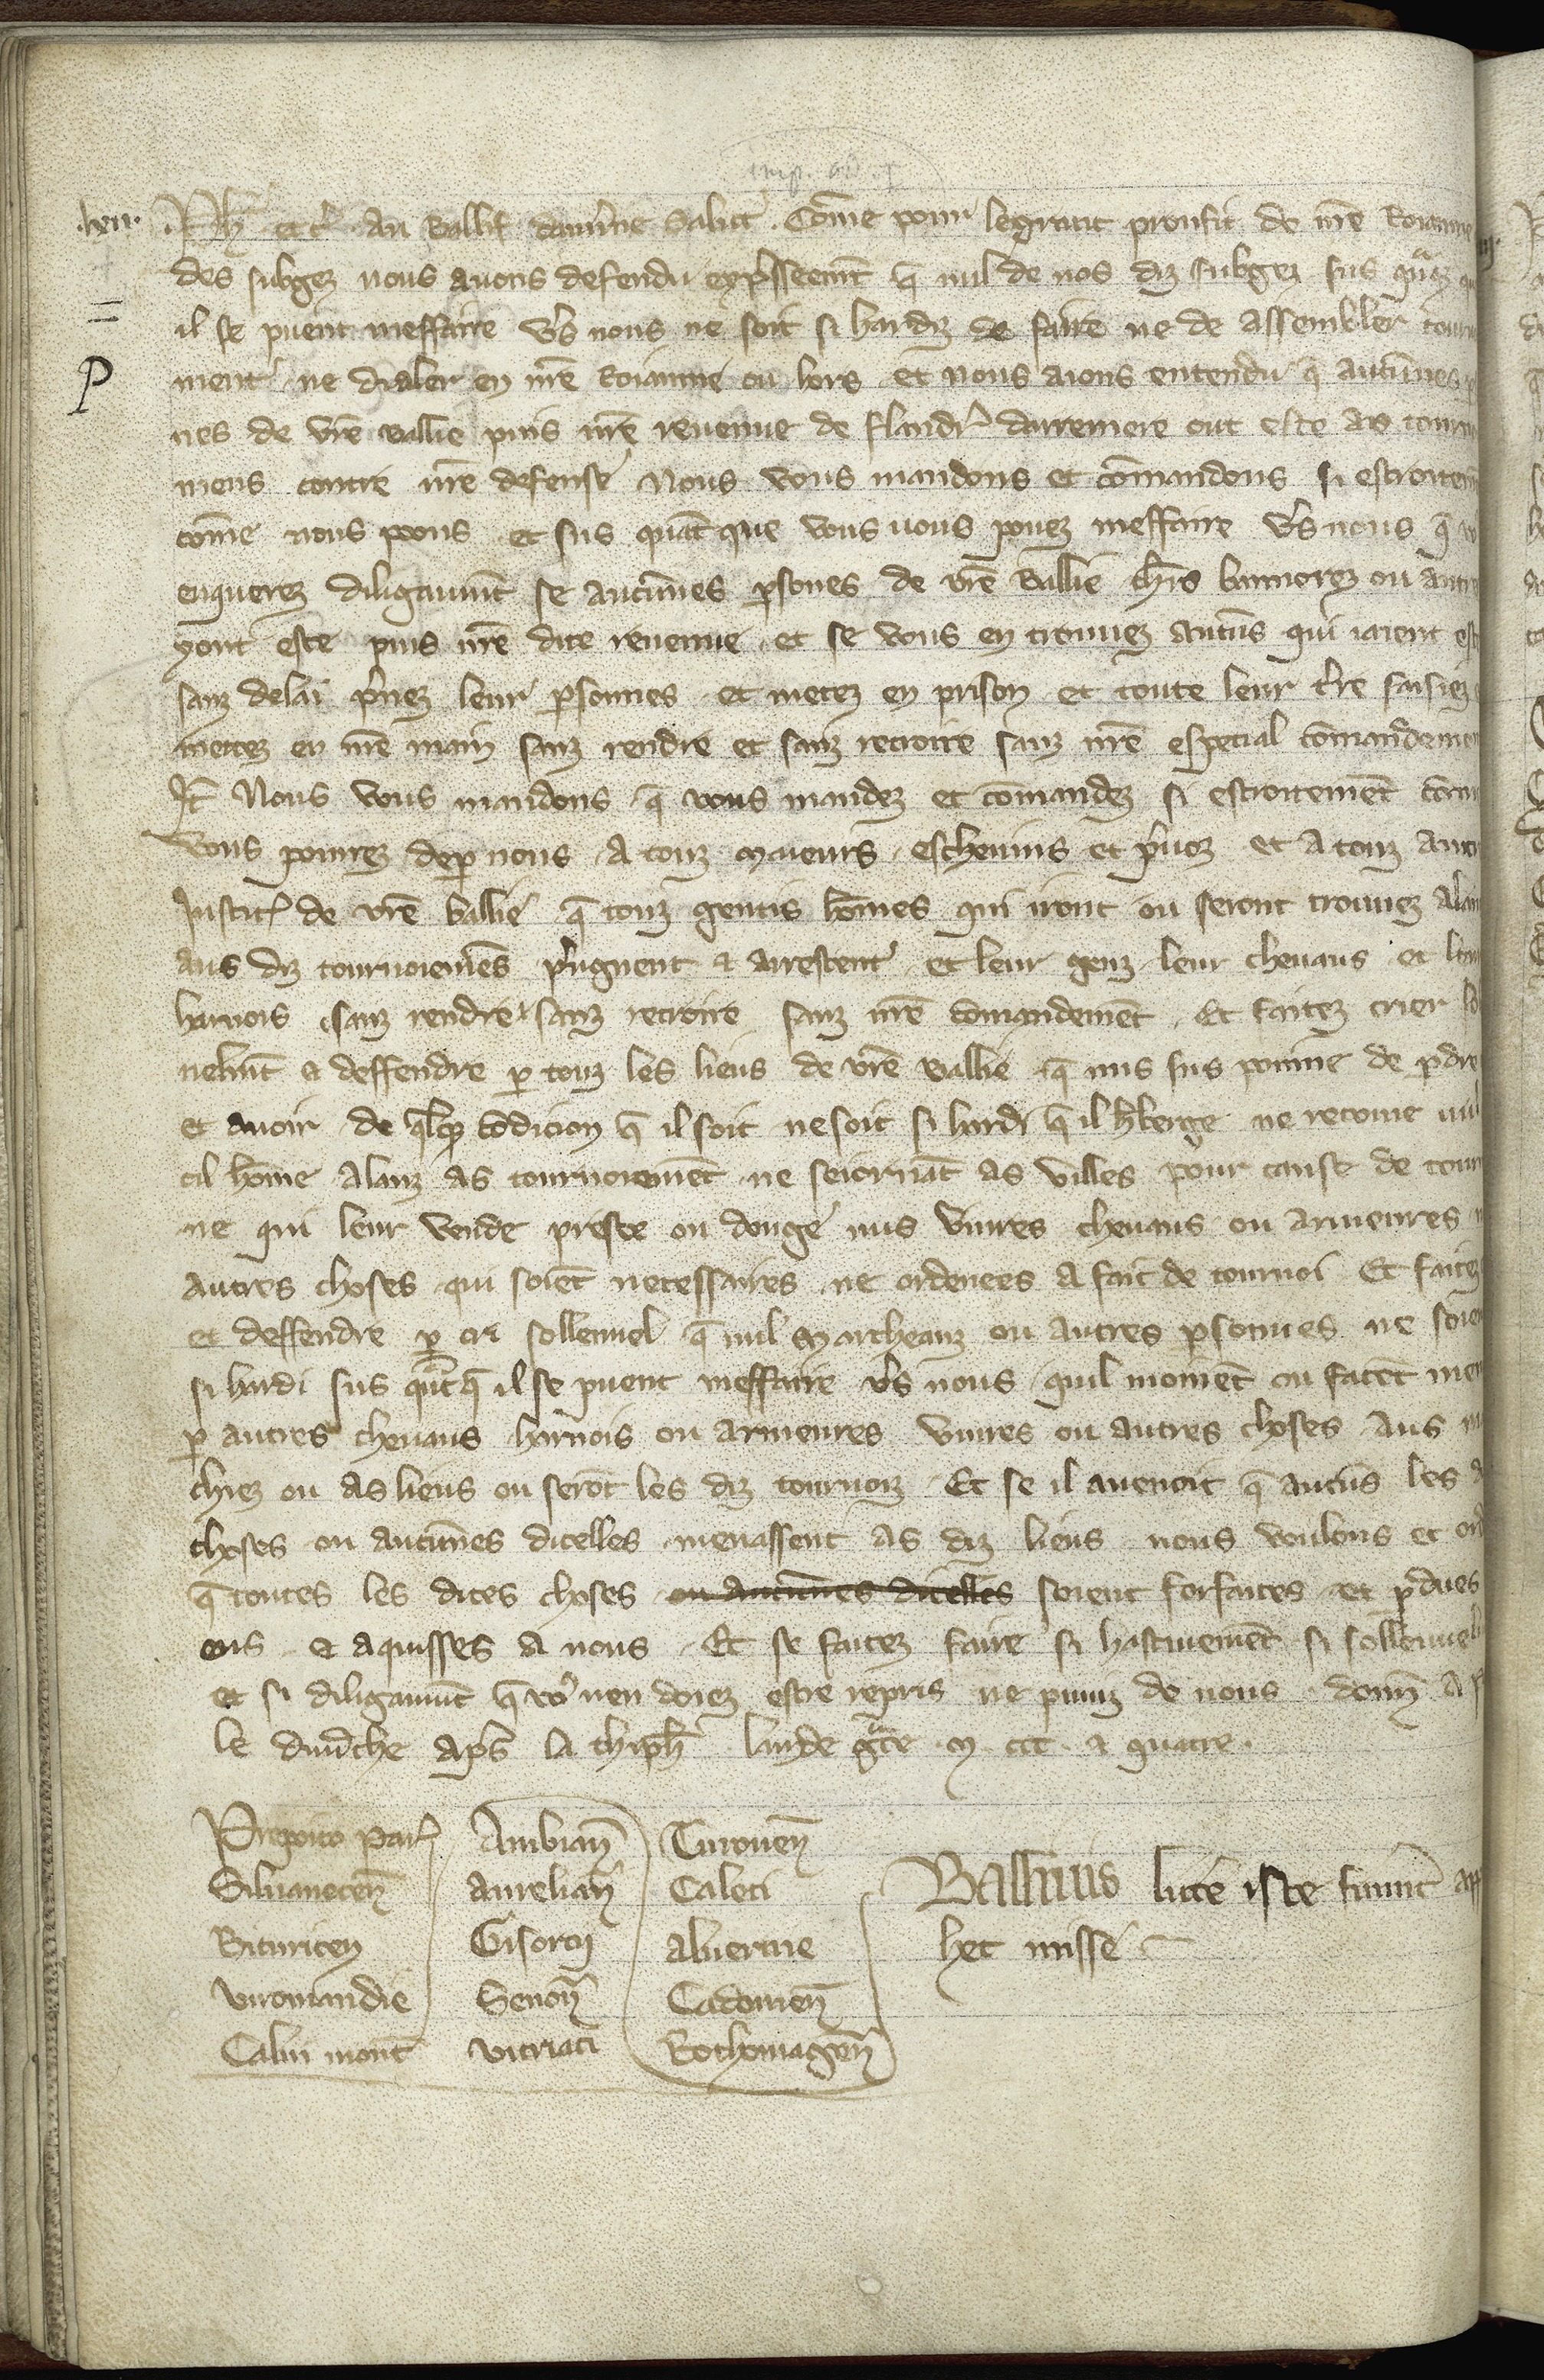 Ph etc. au Ballif daminis salut. Come pour le grant proufit de nre Roiaume
des subgez nous avons defendu expsseemt q nul de nos diz subgez sus quaq
il se puent meffaire vs nous ne soit si hardiz de faire ne de assembler
ment ne daler en nre Roiaume ou hors et nous aions entendu q aucunes
nes de vre ballie puis nre revenue de flandr darreniere ont este as tour
mens contre nre defense Nous vous mandons et comandons si estroitem
come nous poons et sus quat que vous vous povez meffaire vs nous q
enquerez diligaumt se aucunes psones de vre ballie chrs bannerez ou autr
y ont este puis nre dite revenue et se vous en trouvez aucuns qui i aient est
sanz delai pnez leur psonnes et metez en prison et toute leur tre saisiez
metez en nre main sanz rendre et sanz recroire sanz nre especial comandemen
It Nous vous mandons q vous mandez et comandez si estroitement com
vous pourrez de p nous a touz maieurs eschevins et pvoz et a touz autr
Justic de vre ballie q touz gentis homes qui iront ou seront trouvez alan
aus diz tournoiemes pngnent & arrestent et leur genz leur chevaus et leur
harnois sanz rendre & sanz recroire sanz nre comandemet Et faitez crier so
nelmt & deffendre p touz les lieus de vre ballie q nus sus poinne de pdre
et avoir de qlq condicion q il soit ne soit si hardi q il hberge ne recoive nul
til home alanz as tournoiemet ne seiornat as villes pour cause de tour
ne qui leur vende preste ou donge nus vivres chevaus ou armeures
autres choses qui soiet necessaires ne ordenees a fait de tournoi Et faitez
et deffendre p cri sollennel q nul marcheanz ou autres psonnes ne soie
si hardi sus qutq il se puent meffaire vs nous quil moinet ou facet men
p autres chevaus harnois ou armeures vivres ou autres choses aus
chiez ou as lieus ou serot les diz tournoiz Et se il avenoit q aucus les
choses ou aucunes dicelles menassent as diz lieus nous voulons et ord
q toutes les dites choses ou aucunes dicelles soient forfaites et pdues
ous & aquisses a nous Et se faitez faire si hastivement si sollennel
et si diligaumt q vos nen doiez estre repris ne puniz de nous donn a
le dimche aps la thiph lan de gce m ccc & quatre

Preposito Par Ambian Turonen
Silvanecten Aurelian Caleti
Bituricen Gisorcii Alvernie
Viromandie Senon Cadomen
Calvi mont vitriaci Rothomagen
Ballivis litte iste fuunt
hec misse